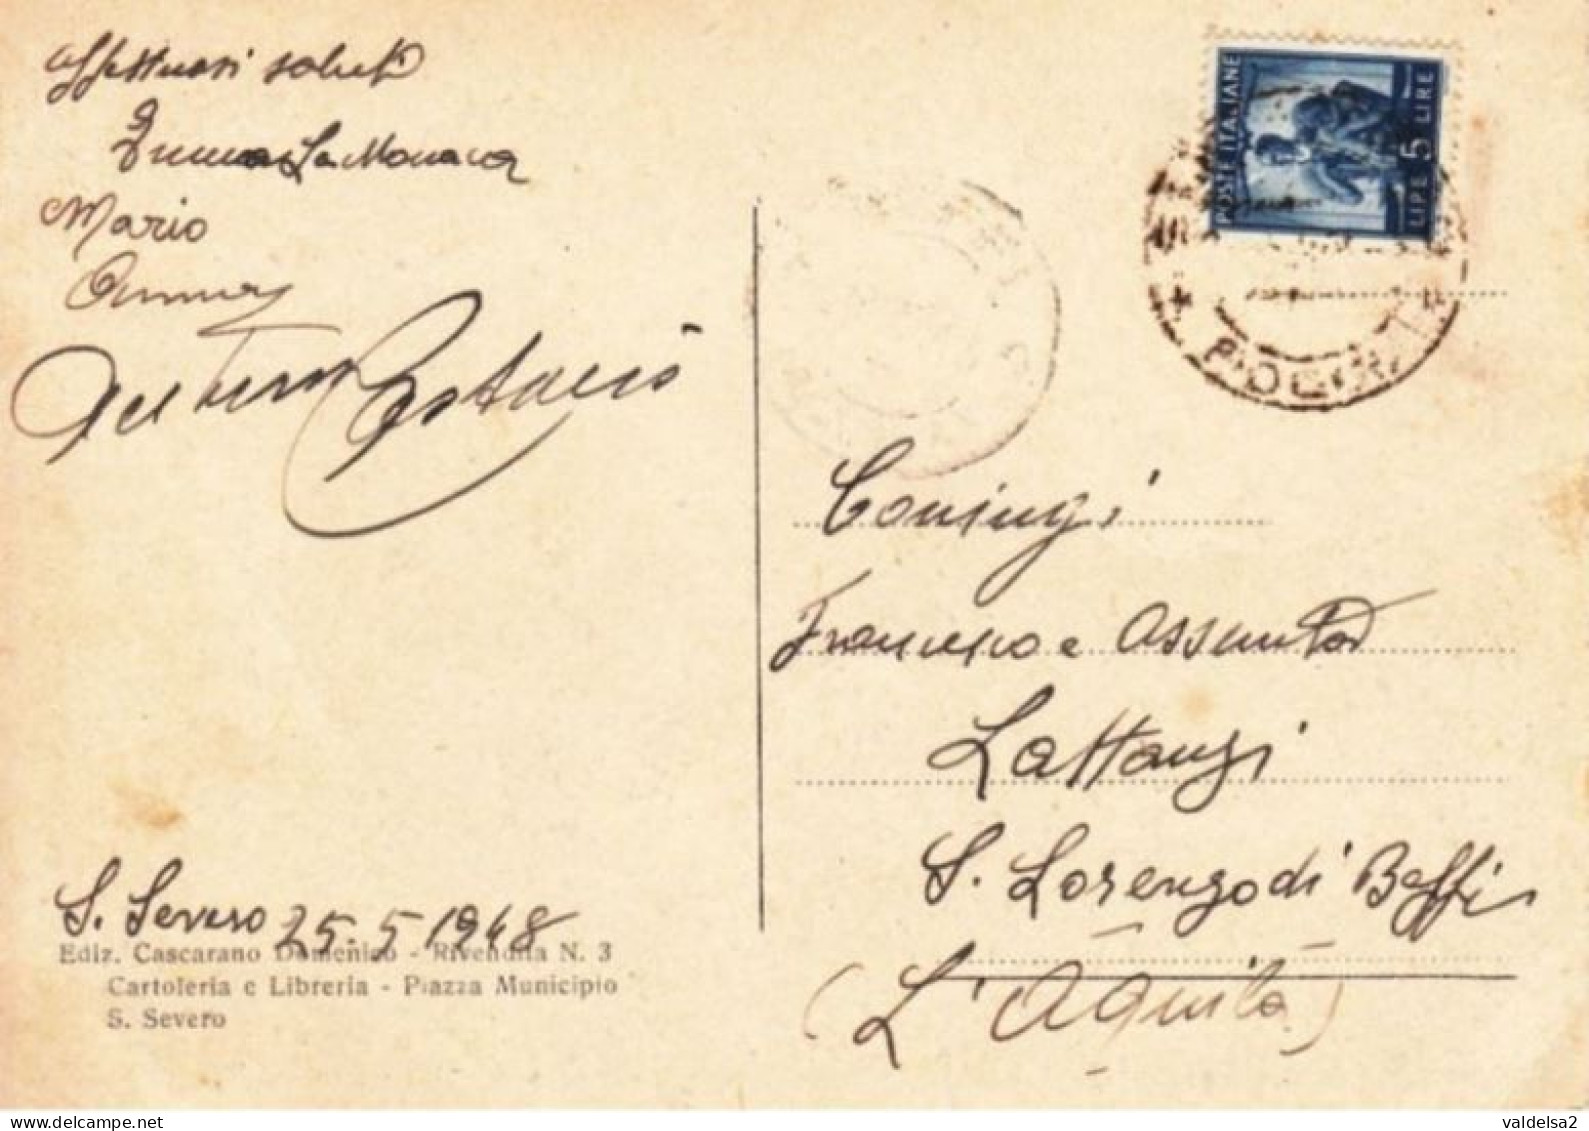 Affettuosi saluti
La Monaca
Mario
S. Severo 25.5 1948
Ediz. Cascarano Domenico - Rivendita N. 3
Cartoleria e Libreria - Piazza Municipio
S. Severo
POSTE ITALIANE
LIRE 5 LIRE
FOGGIA
Coniugi
Francesco e Assunta
Lattanzi
S. Lorenzo di Beffi
(L'Aquila)
valdelsa2